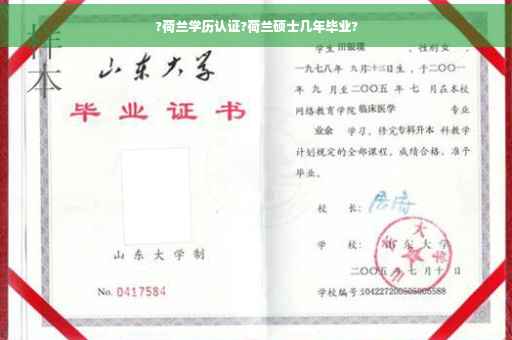 ?荷兰学历认证?荷兰硕士几年毕业?
样本
山东大学
毕业证书
山东大学制
No. 0417584
学生 田敏瑛 ,性别女,
一九七八年 九月十三日生,于二〇〇一
年 九 月至二〇〇五 年 七 月在本校
网络教育学院 临床医学 专业
业余 学习,修完专科升本 科教学
计划规定的全部课程,成绩合格,准予
毕业。
校 长:
学 校: 山东大学
二〇〇五年七月十日
学校编号:104227200505005588